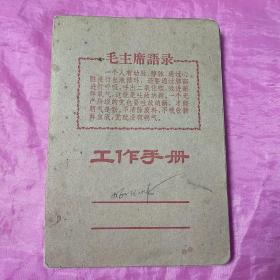 毛主席語录
一个人有动脉、静脉，通过心
脏进行血液循环，还要通过肺部
进行呼吸，呼出二氧化碳，吸进新
鲜氧气，这就是吐故纳新。一个无
产阶级的党也要吐故纳新，才能
朝气蓬勃。不清除废料，不吸收新
鲜血液，党就没有朝气。
工作手册